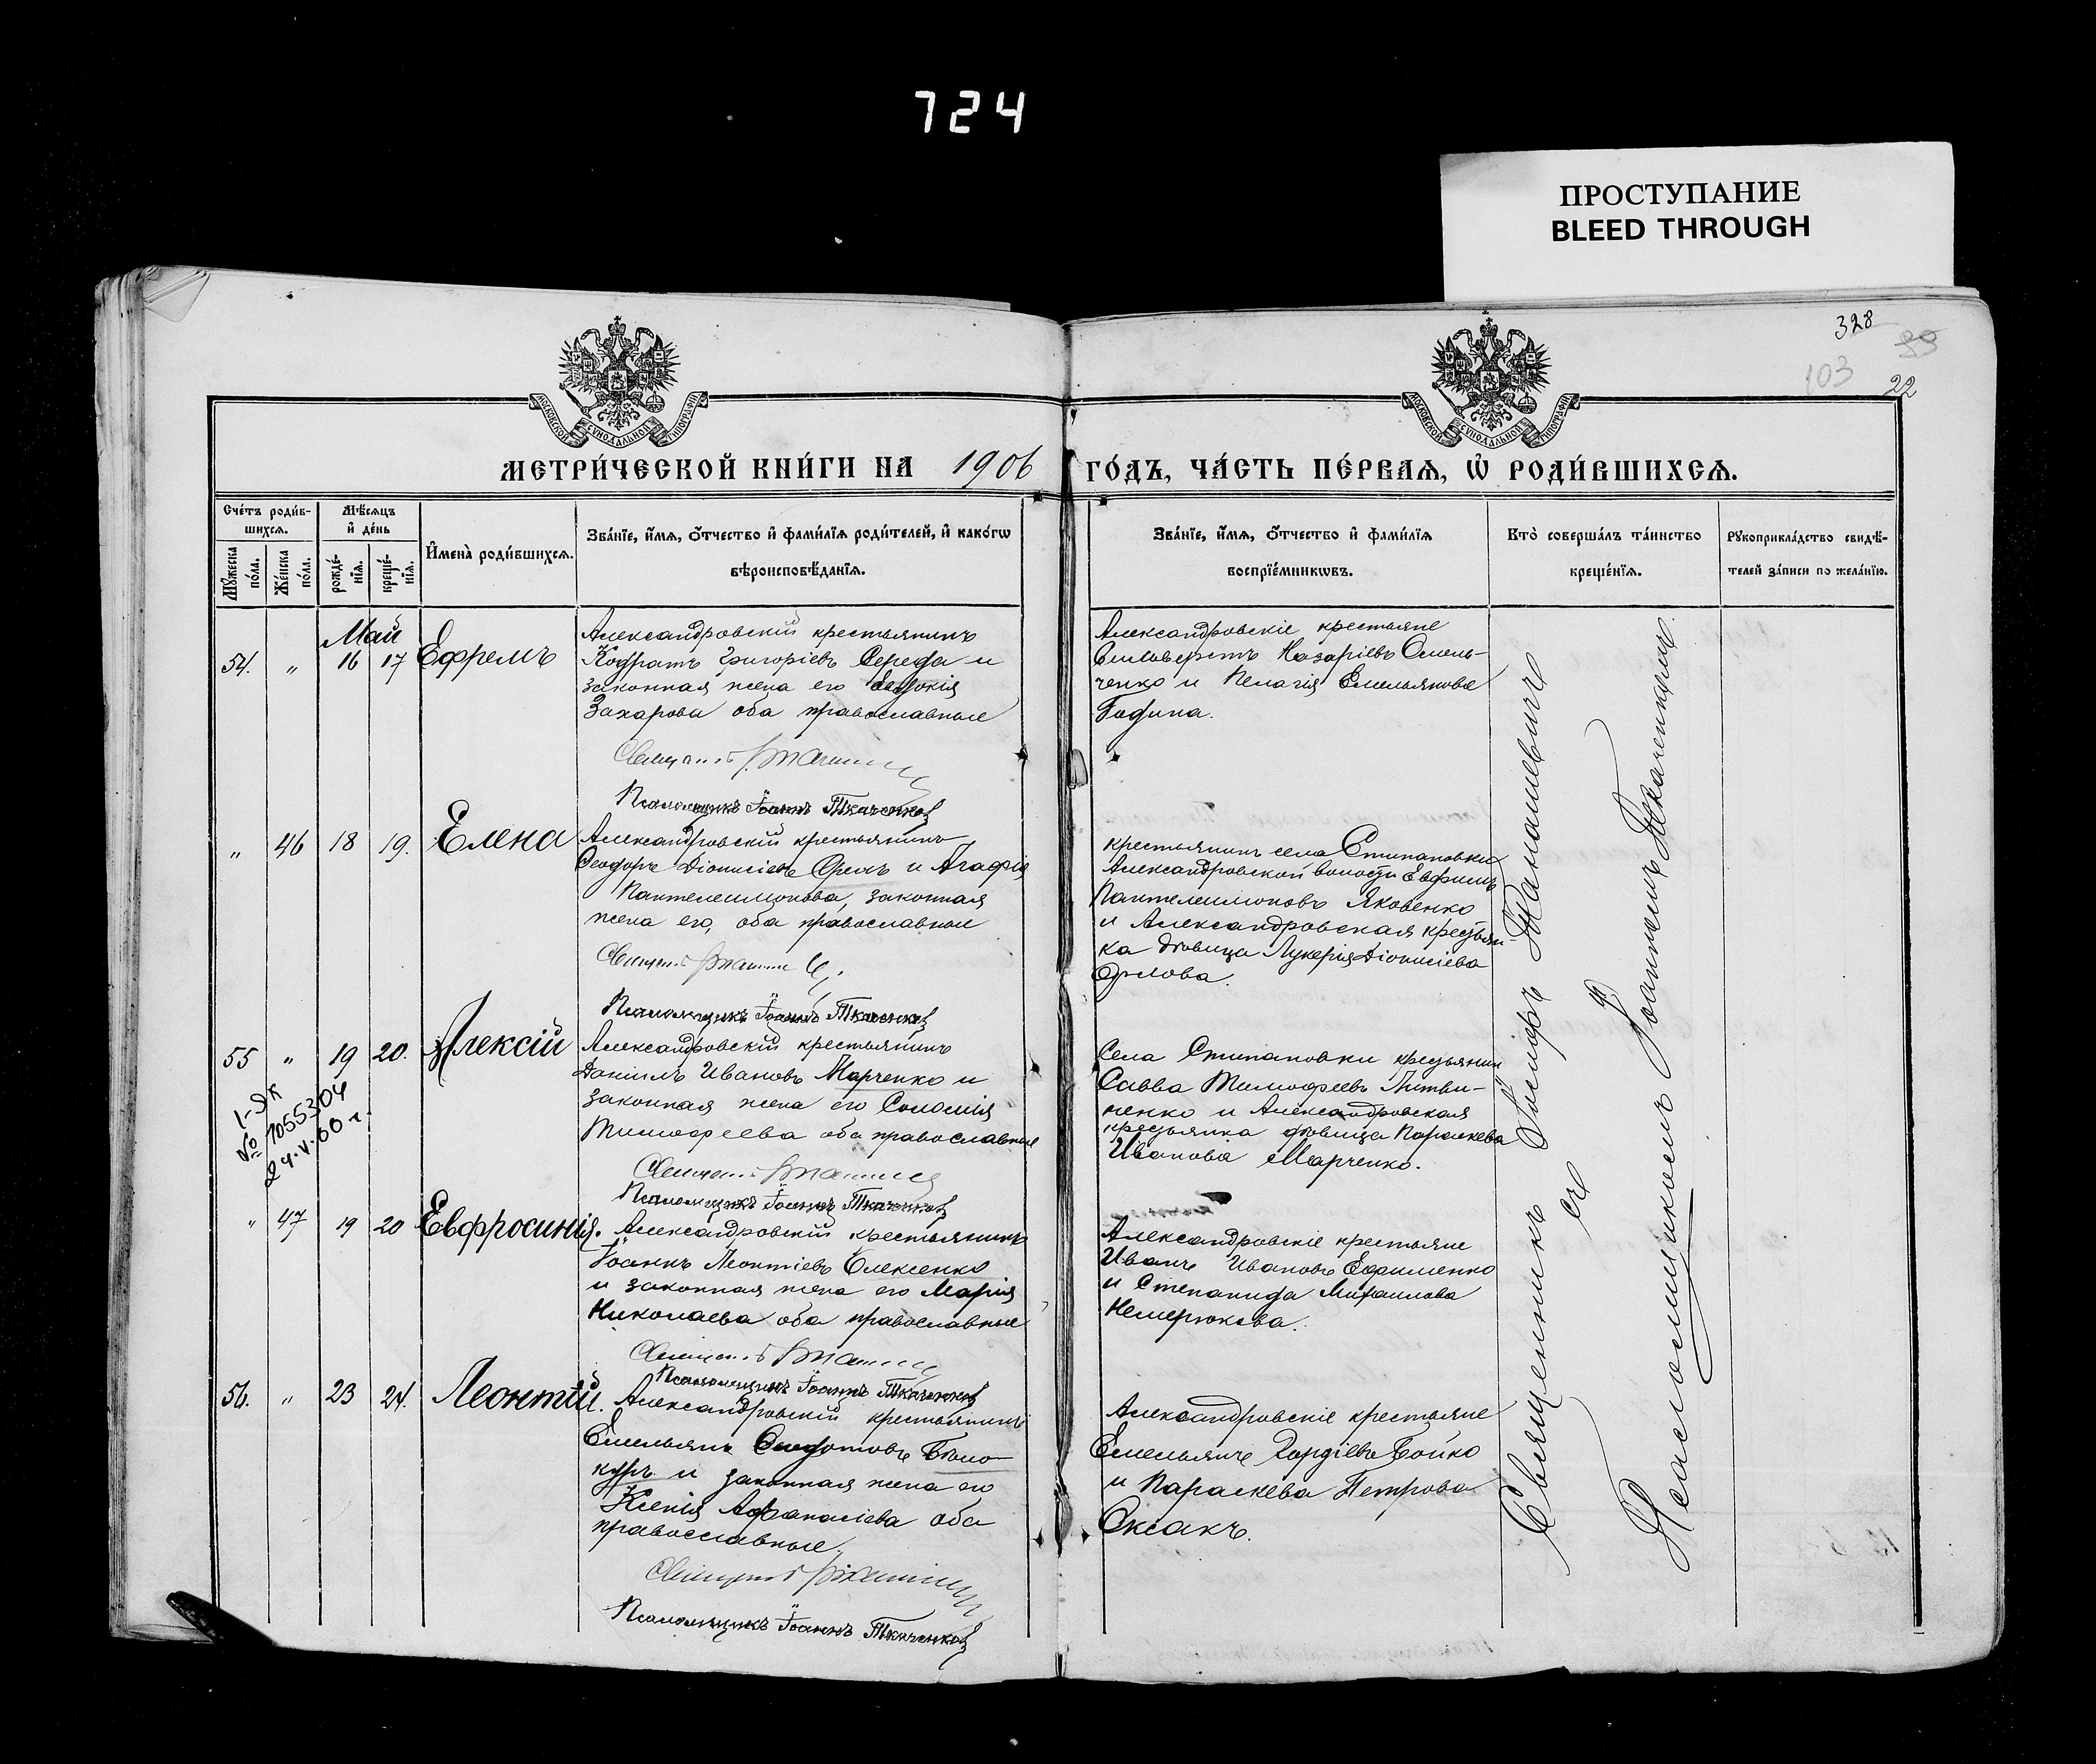 724
ПРОСТУПАНИЕ
BLEED THROUGH
328
99
103
22
МОСКОВСКОЙ СѴНОДАЛЬНОЙ ТИПОГРАФІИ
МОСКОВСКОЙ СѴНОДАЛЬНОЙ ТИПОГРАФІИ
МЕТРИ́ЧЕСКОЙ КНИ́ГИ НА 1906 ГО́ДЪ, ЧА́СТЬ ПЕ́РВАѦ, Ѡ҆ РОДИ́ВШИХСѦ.
Сче́тъ роди́в-
шихсѧ.
Мꙋ́жеска по́ла.
Же́нска по́ла.
Мѣ́сѧцъ
и҆ де́нь
рожде́-
нїѧ.
креще́-
нїѧ.
И҆мена̀ роди́вшихсѧ.
Зва́нїе, и҆́мѧ, ѻ҆́тчество и҆ фами́лїѧ роди́телей, и҆ како́гѡ
вѣроисповѣ́данїѧ.
Зва́нїе, и҆́мѧ, ѻ҆́тчество и҆ фами́лїѧ
воспрїе́мникѡвъ.
Кто̀ соверша́лъ та́инство
креще́нїѧ.
Рꙋкоприкла́дство свидѣ́-
телей за́писи по жела́нїю.
Май
54. " 16 17 Ефремъ
Александровскій крестьянинъ
Кодратъ Григоріевъ Середа и
законная жена его Евдокія
Захарова оба православные
Священникъ
Псаломщикъ Іоаннъ Ткаченков
Александровскіе крестьяне
Сильверстъ Назаріевъ Омель-
ченко и Пелагія Емельянова
Година.
" 46 18 19. Елена
Александровскій крестьянинъ
Ѳеодоръ Діонисіевъ Орелъ и Агафія
Пантелеимонова, законная
жена его, оба православные
Священникъ
Псаломщикъ Іоаннъ Ткаченков
крестьянинъ села Степановки
Александровской волости Евфимъ
Пантелеимоновъ Яковенко
и Александровская крестьян-
ка дѣвица Лукерія Діонисіева
Орлова.
55 " 19 20. Алексій
1-ЯК
№ 1055304
24.V.60 г.
Александровскій крестьянинъ
Даніилъ Ивановъ Марченко и
законная жена его Соломія
Тимофеева оба православные
Священникъ
Псаломщикъ Іоаннъ Ткаченков
Села Степановки крестьянин
Савва Тимофеевъ Литви-
ненко и Александровская
крестьянка дѣвица Параскева
Иванова Марченко.
" 47 19 20 Евфросинія.
Александровскій крестьянинъ
Іоаннъ Леонтіевъ Олексенко
и законная жена его Марія
Николаева оба православные
Священникъ
Псаломщикъ Іоаннъ Ткаченков
Александровскіе крестьяне
Иванъ Ивановъ Ефименко
и Степанида Михаилова
Немерюкова.
56. " 23 24. Леонтій.
Александровскій крестьянинъ
Емельянъ Ѳедотовъ Бѣло-
куръ и законная жена его
Ксенія Афанасіева оба
православные.
Священникъ
Псаломщикъ Іоаннъ Ткаченков
Александровскіе крестьяне
Емельянъ Гордіевъ Бойко
и Параскева Петрова
Оксакъ.
Священникъ Іосифъ
съ
Псаломщикомъ Іоанномъ Ткаченковымъ